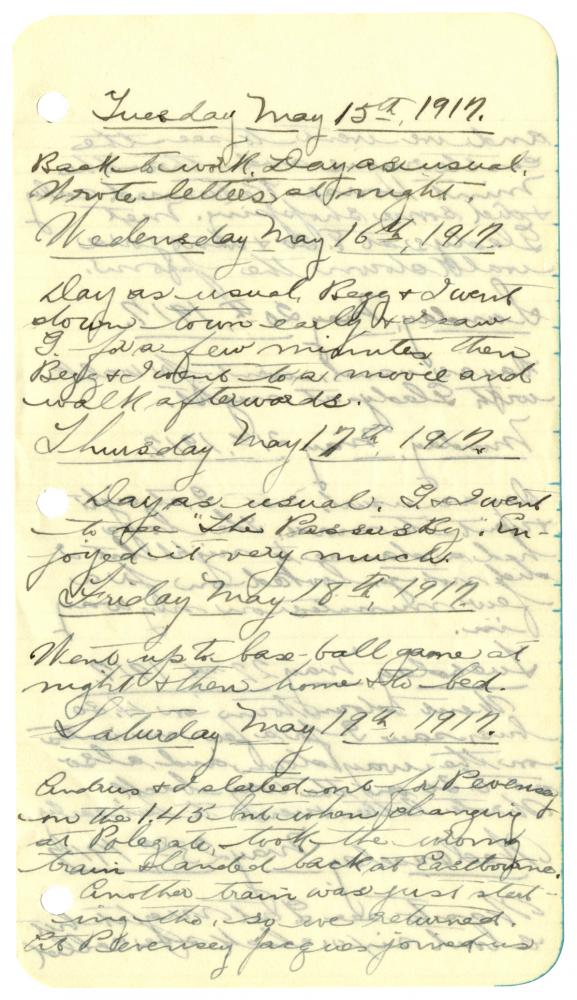 Tuesday May 15th, 1917.
Back to work. Day as usual.
Wrote letters at night.
Wedensday May 16th, 1917.
Day as usual. Begg & I went
down town early & I saw
G. for a few minutes, then
Begg & I went to a movie and
walk afterwards.
Thursday, May 17th, 1917.
Day as usual. G. & I went
to see "The Passersby". En-
joyed it very much.
Friday May 18th, 1917.
Went up to base-ball game at
night & then home & to bed.
Saturday May 19th, 1917.
Andrus & I started out for Pevensey
on the 1.45 but when changing
at Polegate, took the wrong
train & landed back at Eastbourne.
Another train was just start-
ing tho, so we returned.
At Pevensey Jacques joined us